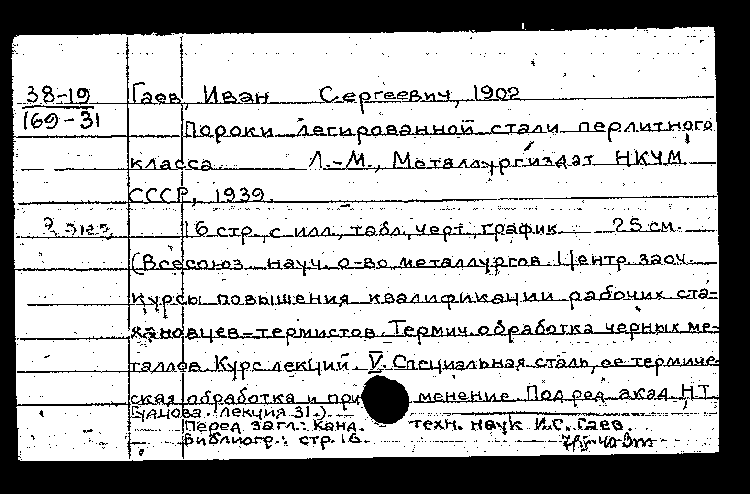 38-19 Гаев, Иван Сергеевич, 1902
169-31
Пороки легированной стали перлитного
класса. Л.-М., Металлургиздат НКЧМ
СССР, 1939.
2 экз. 16 стр. с илл., табл., черт., график. 25 см.
(Всесоюз. науч. о-во металлургов. Центр. заоч.
курсы повышения квалификации рабочих ста-
хановцев-термистов. Термич. обработка черных ме-
таллов. Курс лекций. V. Специальная сталь, ее термиче-
ская обработка и применение. Под ред. акад. Н.Т.
Гудцова. Лекция 31.).
Перед загл.: Канд. техн. наук И.С. Гаев.
Библиогр.: стр. 16.